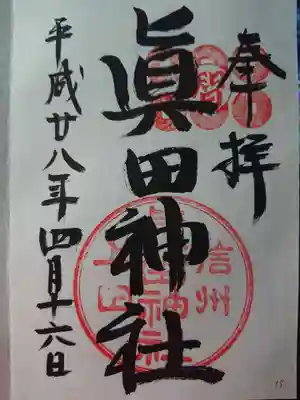 奉拝
眞田神社
平成廿八年四月十六日
信州
上田
眞田神社
15